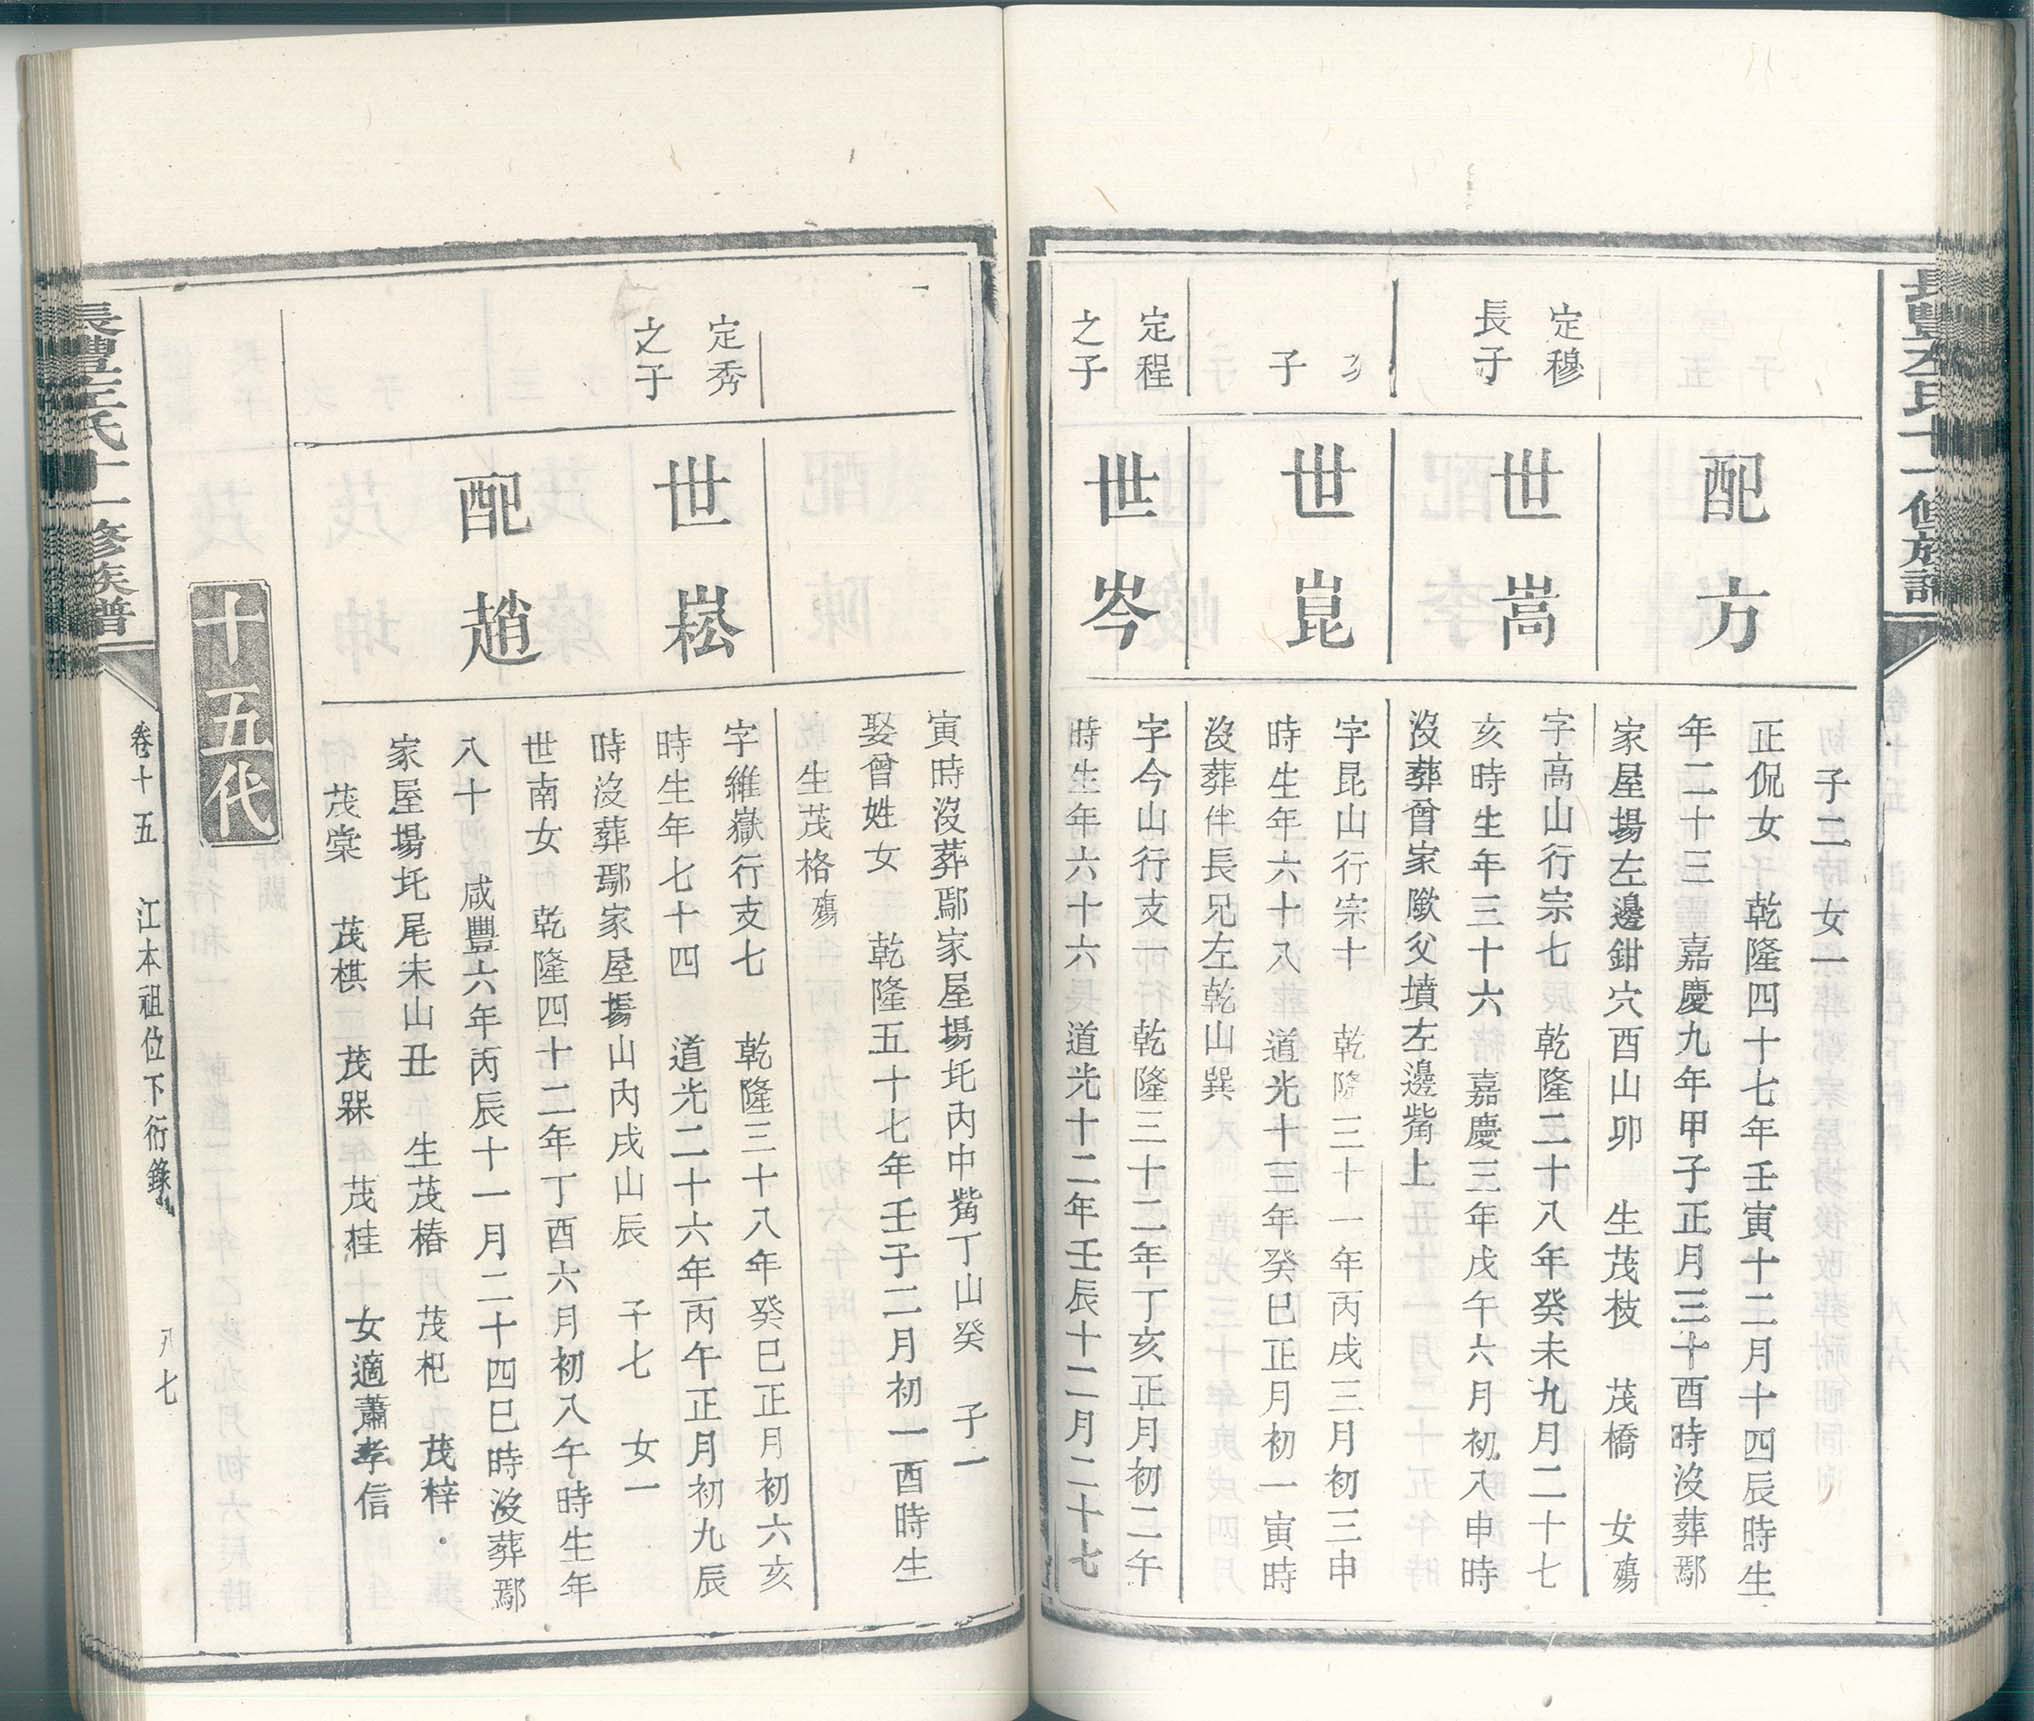 子二 女一
配方
正侃女 乾隆四十七年壬寅十二月十四辰時生
年二十三 嘉慶九年甲子正月三十酉時沒葬鄢
家屋場左邊鉗穴酉山卯 生茂枝 茂橋 女殤
定穆
長子
世嵩
字高山行宗七 乾隆二十八年癸未九月二十七
亥時生年三十六 嘉慶三年戊午六月初八申時
沒葬曾家陂父墳左邊嘴上
次
子
世崑
字昆山行宗十 乾隆三十一年丙戌三月初三申
時生年六十八 道光十三年癸巳正月初一寅時
沒葬伴長兄左乾山巽
定程
之子
世岑
字今山行支一 乾隆三十二年丁亥正月初二午
時生年六十六 道光十二年壬辰十二月二十七
寅時沒葬鄢家屋場圫內中嘴丁山癸 子一
娶曾姓女 乾隆五十七年壬子二月初一酉時生
生茂格殤
定秀
之子
世崧
字維嶽行支七 乾隆三十八年癸巳正月初六亥
時生年七十四 道光二十六年丙午正月初九辰
時沒葬鄢家屋場山內戌山辰 子七 女一
配趙
世南女 乾隆四十二年丁酉六月初八午時生年
八十 咸豐六年丙辰十一月二十四巳時沒葬鄢
家屋場圫尾未山丑 生茂椿 茂杞 茂梓
茂棠 茂棋 茂槑 茂桂 女適蕭孝信
十五代
長豊左氏十一修族譜
卷十五 江本祖位下衍錄 八七